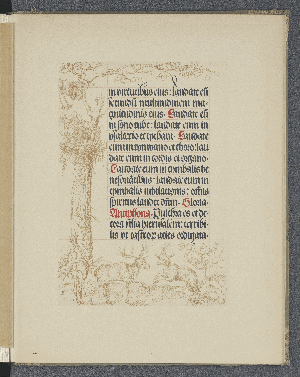 in virtutibus eius: laudate eū
secundū multitudinem ma-
gnitudinis eius. Laudate eū
in sono tube: laudate eum in
psalterio et cythara. Laudate
eum in tympano et choro: lau
date eum in cordis et organo.
Laudate eum in cymbalis be
nesonātibus: laudate eum in
cymbalis iubilationis: omnis
spiritus laudet dñm. Gloria.
Antiphona. Pulchra es et de-
cora filia hierusalem: terribi-
lis ut castrorū acies ordinata.